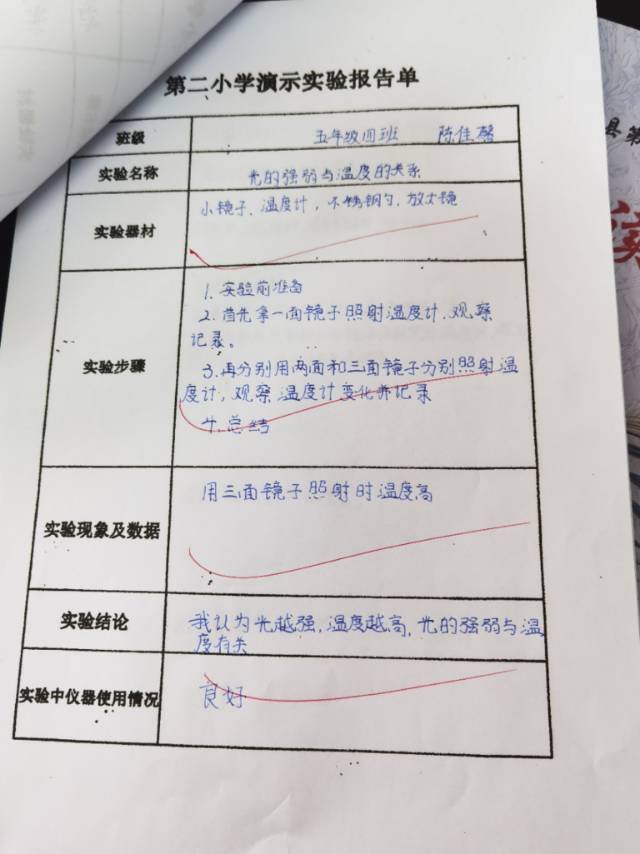 第二小学演示实验报告单
班级 五年级四班 陈佳馨
实验名称 光的强弱与温度的关系
实验器材 小镜子、温度计，不锈钢勺，放大镜
实验步骤
1.实验前准备
2.首先拿一面镜子照射温度计，观察
记录。
3.再分别用两面和三面镜子分别照射温
度计，观察温度计变化并记录
4.总结
实验现象及数据 用三面镜子照射时温度高
实验结论 我认为光越强，温度越高，光的强弱与温
度有关
实验中仪器使用情况 良好
县第